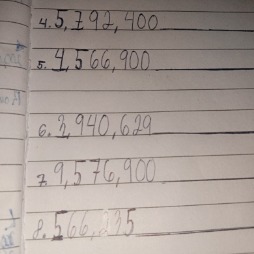 4. 5,792,400
5. 4,566,900
6. 3,940,629
7. 9,576,900
8. 566,235